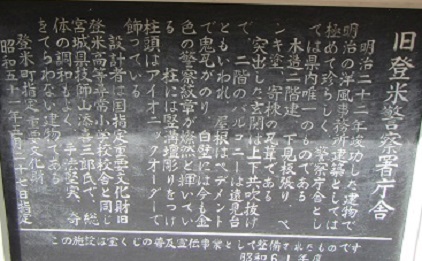 旧登米警察署庁舎
明治二十二年竣功した建物で
明治の洋風事務所建築としては
極めて珍らしく、警察庁舎とし
ては県内唯一のものである
木造二階建、下見板張り、ペ
ンキ塗、寄棟の瓦葺である
突出した玄関は上下共吹抜け
で、二階のバルコニーは遠見台
ともいわれ、屋根はペデメント
で鬼瓦がのり、白壁には今も金
色の警察紋章が燦然と輝いてい
る 柱には竪溝堀彫りをつけ
柱頭はアイオニックオーダーで
飾っている
設計者は国指定重要文化財旧
登米高等尋常小学校校舎と同じ
宮城県技師山添喜三郎氏で、総
体の調和もよく、手法堅実、奇
をてらわない建物である
登米町指定重要文化財
昭和五十一年 月二十七日指定
この施設は宝くじの普及宣伝事業として整備されたものです
昭和61年度